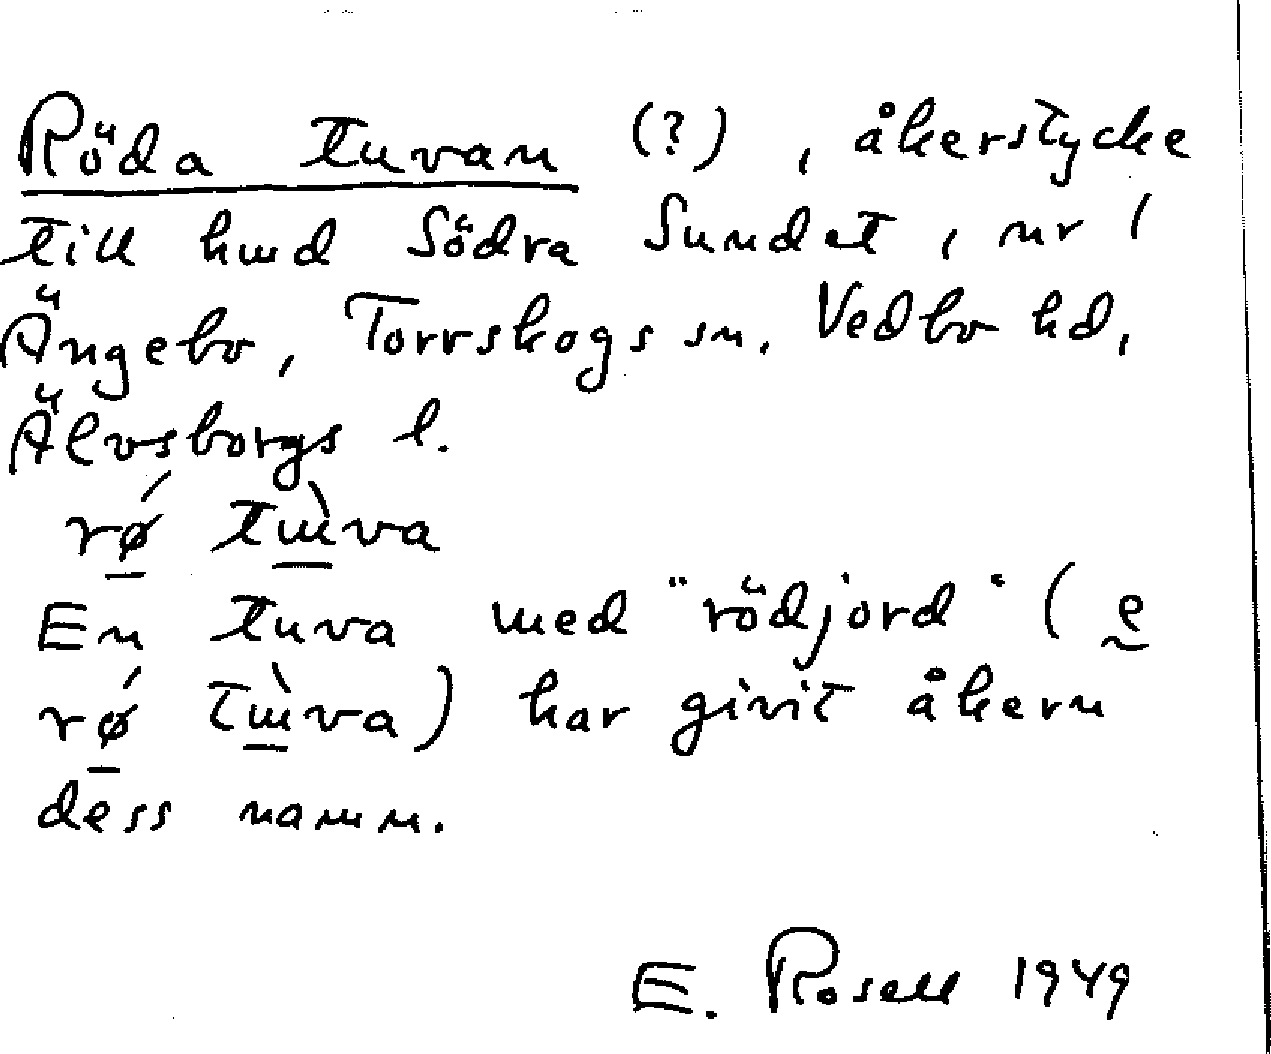 Röda tuvan (?), åkerstycke
till hmd Södra Sundet, nr 1
Ängebo, Torrskogs sn. Vedbo hd,
Älvsborgs l.
rǿ tɯ̀va
En tuva med "rödjord" (e̯
rǿ tɯ̀va) har givit åkern
dess namn.
E. Rosell 1949